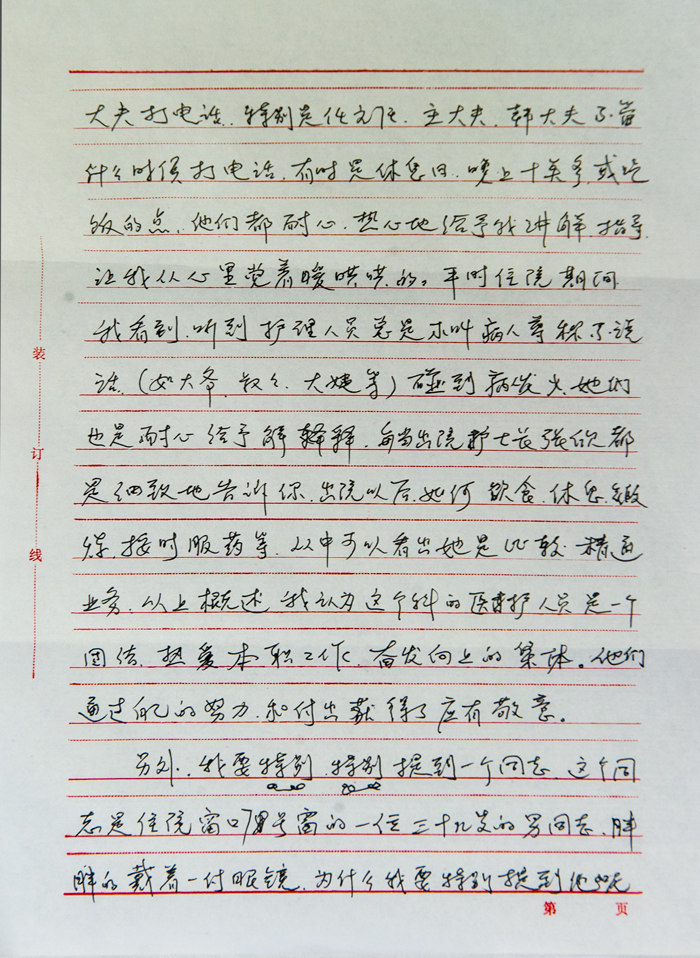 大夫打电话，特别是任主任、王大夫、韩大夫不管
什么时候打电话，有时是休息日，晚上十点多，或吃
饭的点，他们都耐心、热心地给予我讲解、指导，
让我从心里觉着暖哄哄的。平时住院期间
我看到、听到护理人员总是不叫病人尊称不说
话，（如大爷、叔叔、大姨等）碰到病发火，她们
也是耐心给予解释，每当出院护士长张欣都
是细致地告诉你，出院以后如何饮食、休息、锻
炼、按时服药等，从中可以看出她是比较精通
业务，以上概述，我认为这个科的医护人员是一个
团结、热爱本职工作，奋发向上的集体。他们
通过自己的努力和付出获得了应有敬意。
另外，我要特别、特别提到一个同志，这个同
志是住院窗口 号窗的一位三十几岁的男同志，胖
胖的戴着一付眼镜，为什么我要特别提到他呢
装
订
线
第 页